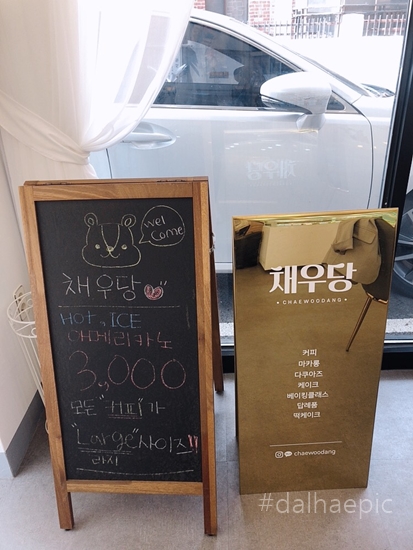 wel
come
채우당
HOT, ICE
아메리카노
3,000
모든 "커피"가
"Large"사이즈!!
라지
채우당
• CHAEWOODANG •
커피
마카롱
다쿠아즈
케이크
베이킹클래스
답례품
떡케이크
chaewoodang
#dalhaepic